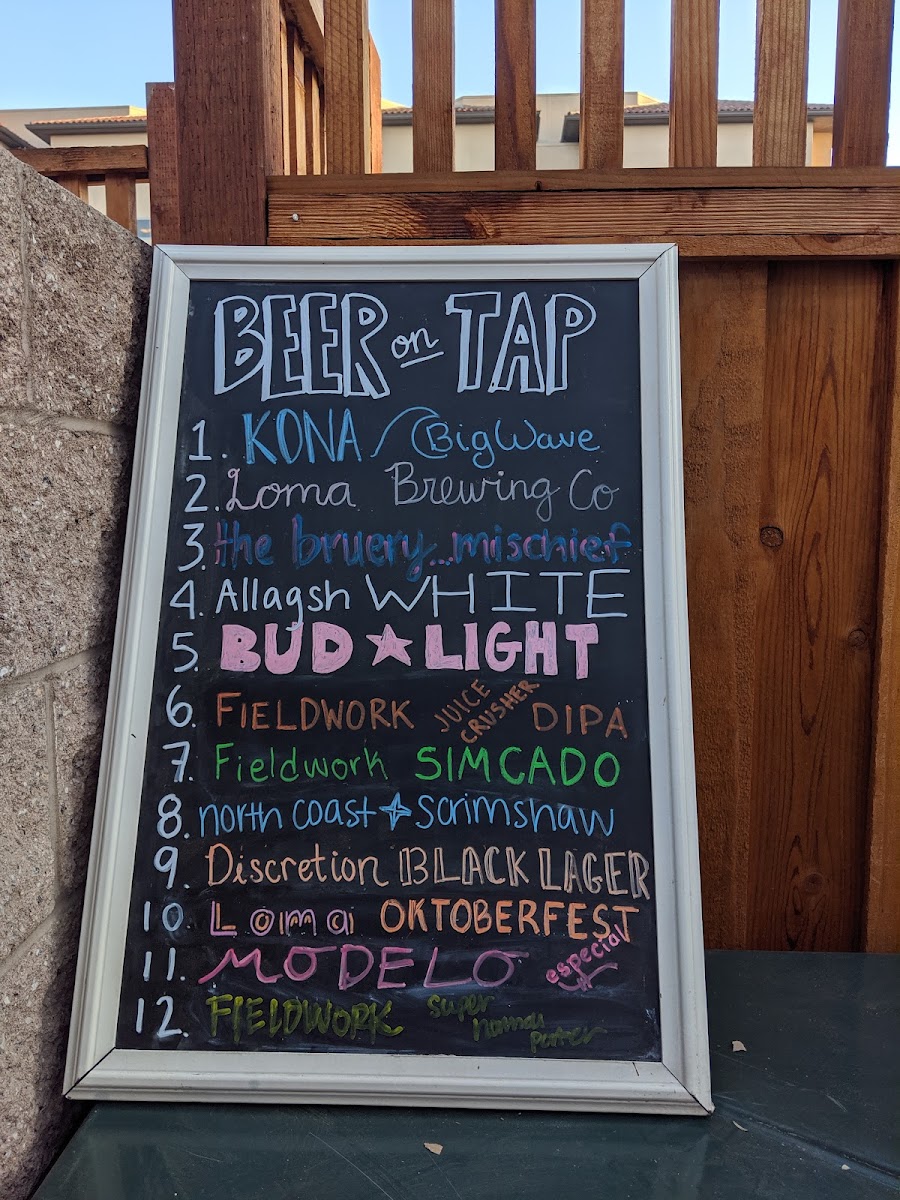 BEER on TAP
1. KONA Big Wave
2. Loma Brewing Co
3. the bruery...mischief
4. Allagsh WHITE
5. BUD LIGHT
6. FIELDWORK JUICE CRUSHER DIPA
7. Fieldwork SIMCADO
8. north coast scrimshaw
9. Discretion BLACK LAGER
10. Loma OKTOBERFEST
11. MODELO especial
12. FIELDWORK super
porter